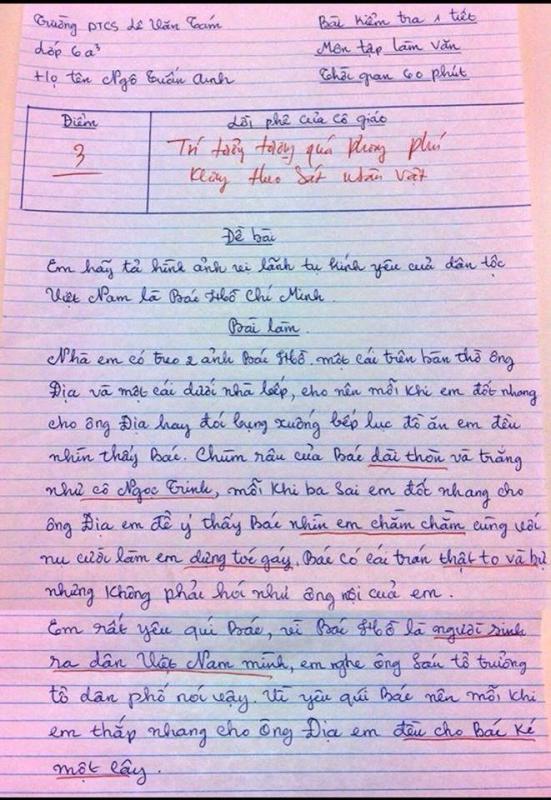 Trường PTCS Lê Văn Tám
Bài kiểm tra 1 tiết
Lớp 6a3
Môn tập làm văn
Họ tên Ngô Tuấn Anh
Thời gian 60 phút
Điểm
Lời phê của cô giáo
3
Trí tưởng tượng quá phong phú
Không theo sát nhân vật
Đề bài
Em hãy tả hình ảnh vị lãnh tụ kính yêu của dân tộc
Việt Nam là Bác Hồ Chí Minh.
Bài làm.
Nhà em có treo 2 ảnh Bác Hồ. một cái trên bàn thờ ông
Địa và một cái dưới nhà bếp, cho nên mỗi khi em đốt nhang
cho ông Địa hay đói bụng xuống bếp lục đồ ăn em đều
nhìn thấy Bác. Chùm râu của Bác dài thòn và trắng
như cô Ngọc Trinh, mỗi khi ba sai em đốt nhang cho
ông Địa em để ý thấy Bác nhìn em chằm chằm cùng với
nụ cười làm em dựng tóc gáy. Bác có cái trán thật to và bự
nhưng không phải hói như ông nội của em.
Em rất yêu quí Bác, vì Bác Hồ là người sinh
ra dân Việt Nam mình, em nghe ông Sáu tổ trưởng
tổ dân phố nói vậy. Vì yêu quí Bác nên mỗi khi
em thắp nhang cho Ông Địa em đều cho Bác ké
một cây.